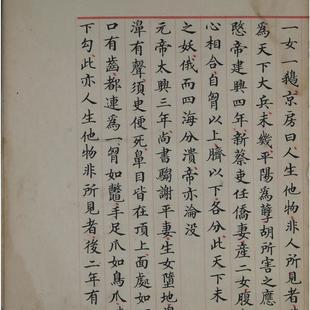 一女一鵝京房曰人生他物非人所見者
為天下大兵未幾平陽為孽胡所害之應
愍帝建興四年新蔡吏任僑妻產二女腹
心相合自胷以上臍以下各分此天下未
之妖俄而四海分潰帝亦淪没
元帝太興三年尚書騶謝平妻生女墮地
濞有聲須㬰便死鼻目皆在頂上面處如
口有齒都連為一胷如鼈手足爪如鳥爪
下勾此亦人生他物非所見者後二年有